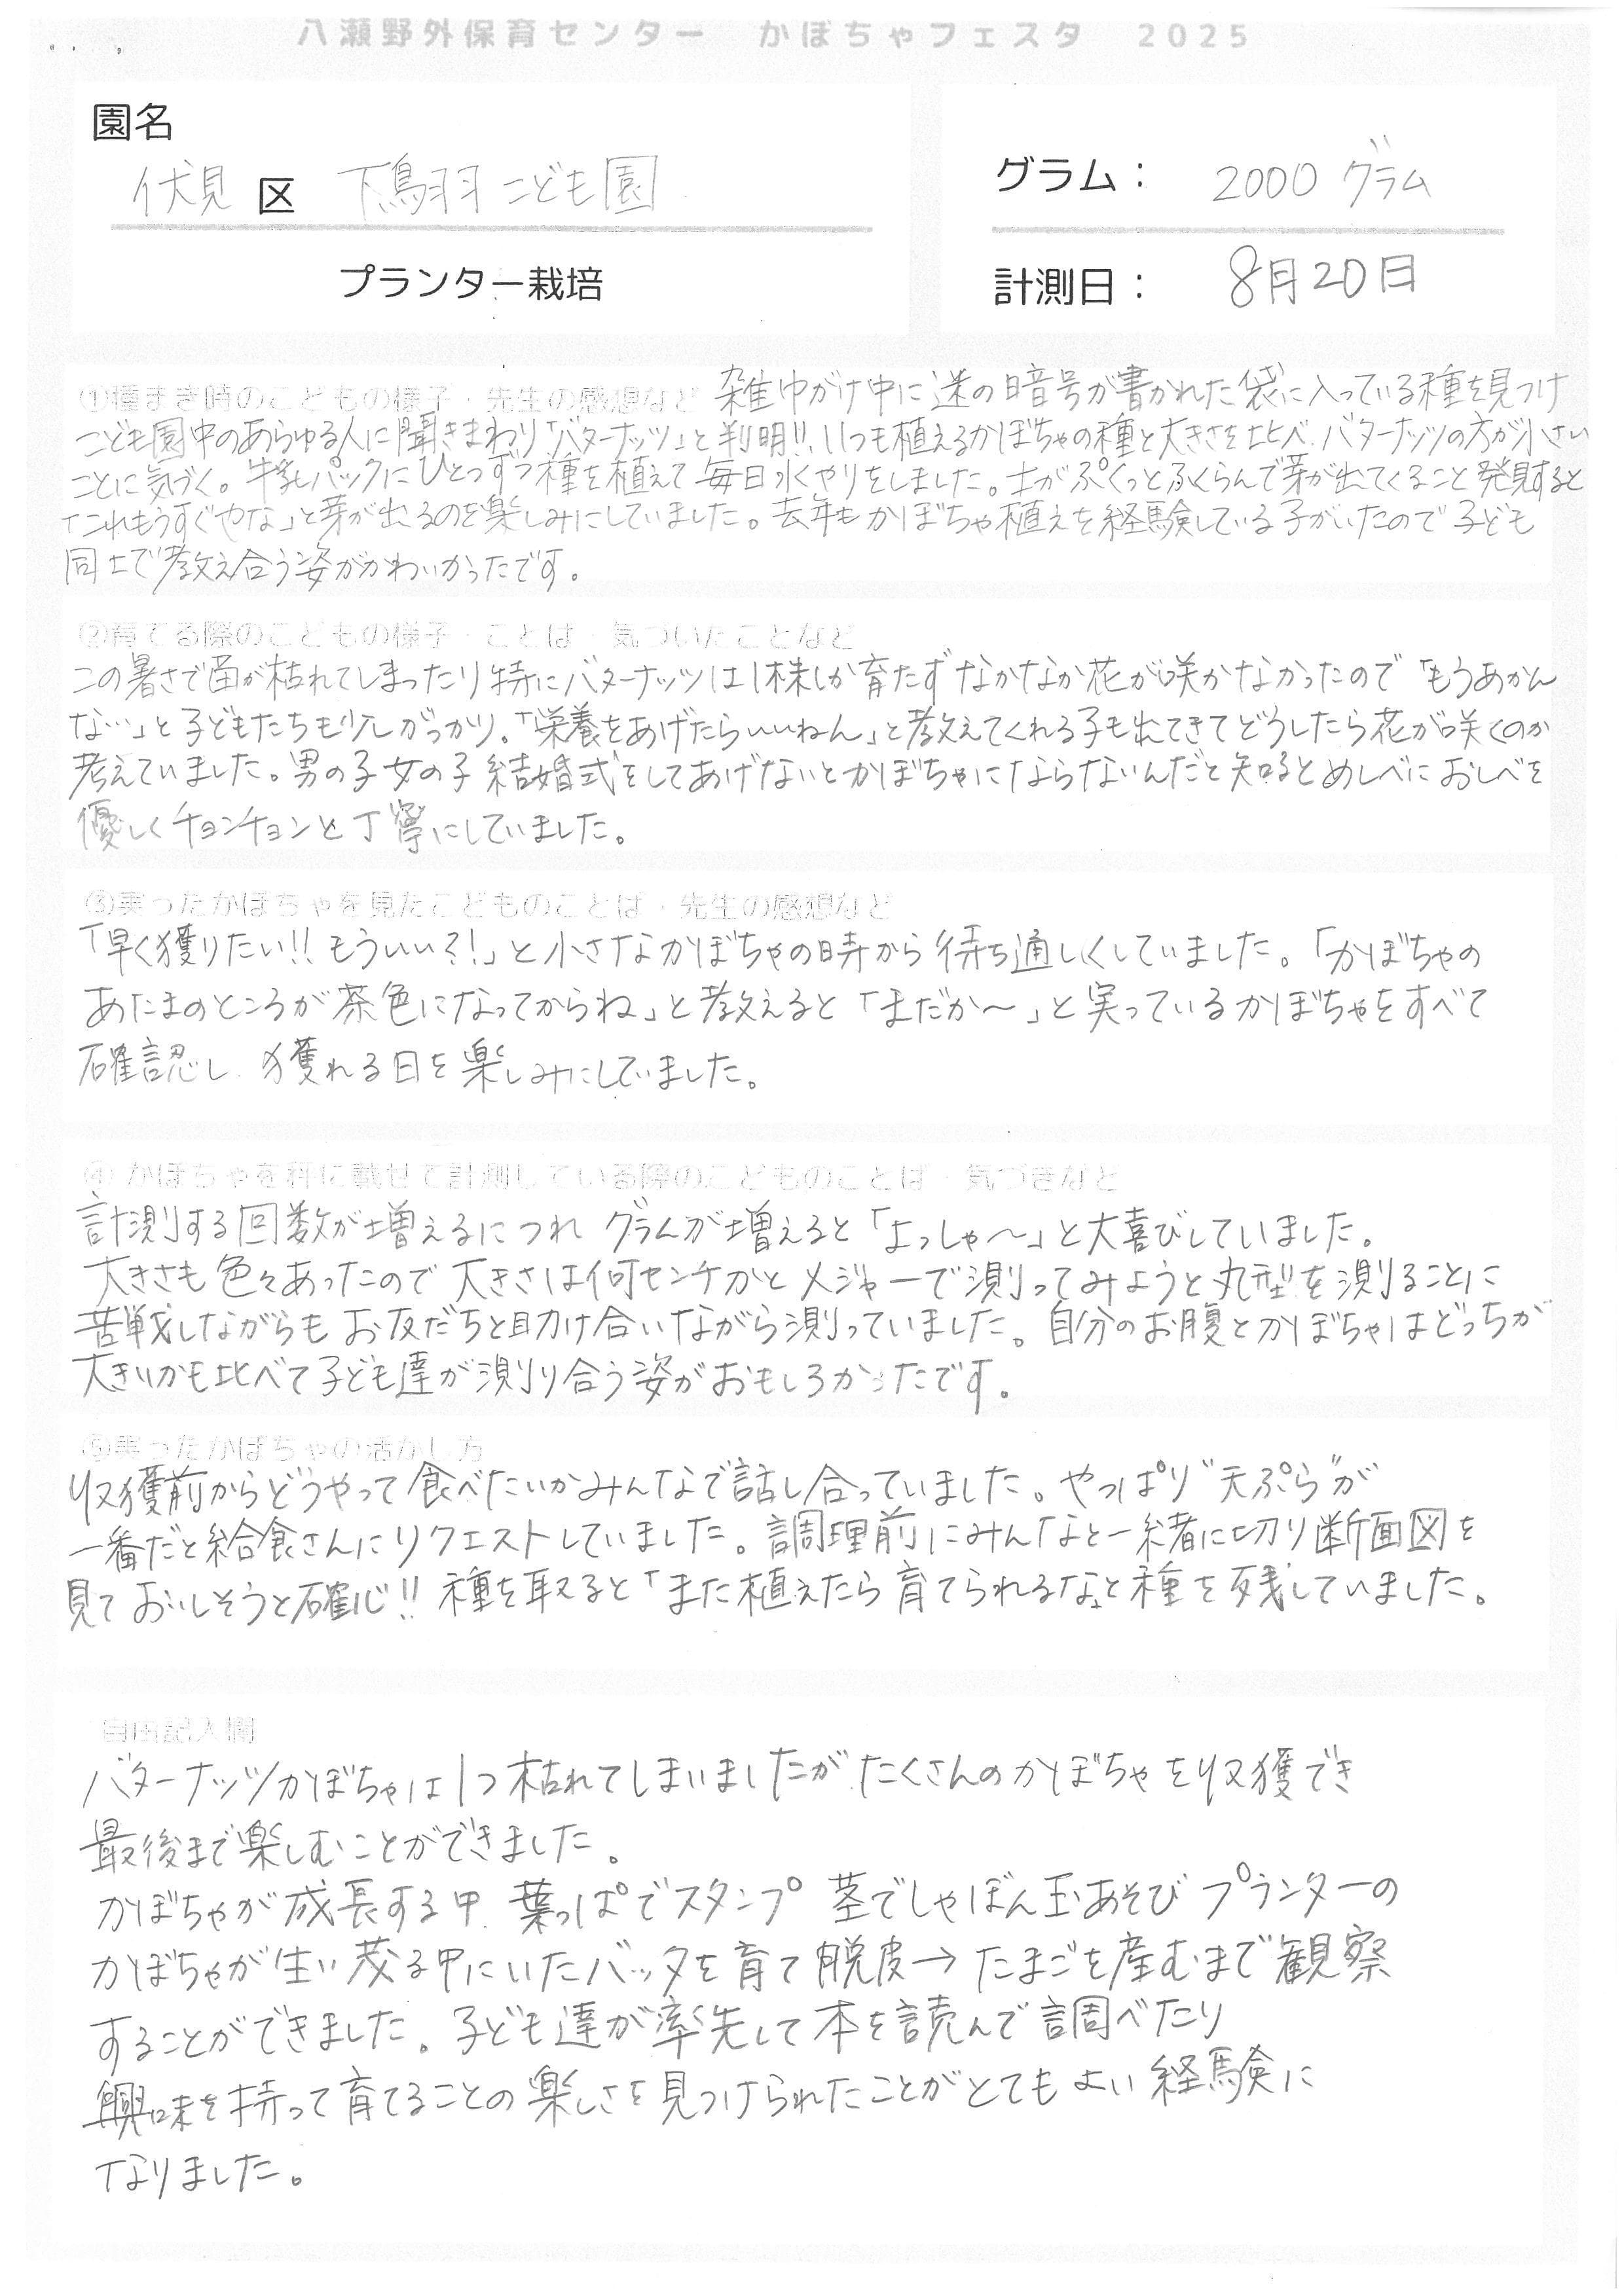 八瀬野外保育センター　かぼちゃフェスタ　2025
園名
伏見 区 下鳥羽こども園
プランター栽培
グラム： 2000グラム
計測日： 8月20日
①種まき時のこどもの様子・先生の感想など 雑巾がけ中に迷の暗号が書かれた袋に入っている種を見つけ
こども園中のあらゆる人に聞きまわり「バターナッツ」と判明!!いつも植えるかぼちゃの種と大きさを比べ、バターナッツの方が小さい
ことに気づく。牛乳パックにひとつずつ種を植えて毎日水やりをしました。土がぷくっとふくらんで芽が出てくること発見すると
「これもうすぐやな」と芽が出るのを楽しみにしていました。去年もかぼちゃ植えを経験している子がいたので子ども
同士で教え合う姿がかわいかったです。
②育てる際のこどもの様子・ことば・気づいたことなど
この暑さで苗が枯れてしまったり特にバターナッツは1株しか育たずなかなか花が咲かなかったので「もうあかん
な…」と子どもたちも少しがっかり。「栄養をあげたらいいねん」と教えてくれる子も出てきてどうしたら花が咲くのか
考えていました。男の子女の子結婚式をしてあげないとかぼちゃにならないんだと知るとめしべにおしべを
優しくチョンチョンと丁寧にしていました。
③実ったかぼちゃを見たこどものことば・先生の感想など
「早く獲りたい!!もういい?!」と小さなかぼちゃの時から待ち通しくしていました。「かぼちゃの
あたまのところが茶色になってからね」と教えると「まだか〜」と実っているかぼちゃをすべて
確認し、獲れる日を楽しみにしていました。
④かぼちゃを秤に載せて計測している際のこどものことば・気づきなど
計測する回数が増えるにつれ グラムが増えると「よっしゃ〜」と大喜びしていました。
大きさも色々あったので大きさは何センチかとメジャーで測ってみようと丸型を測ることに
苦戦しながらもお友だちと助け合いながら測っていました。自分のお腹とかぼちゃはどっちが
大きいかも比べて子ども達が測り合う姿がおもしろかったです。
⑤実ったかぼちゃの活かし方
収獲前からどうやって食べたいかみんなで話し合っていました。やっぱり"天ぷら"が
一番だと給食さんにリクエストしていました。調理前にみんなと一緒に切り断面図を
見ておいしそうと確心!!種を取ると「また植えたら育てられるな」と種を残していました。
自由記入欄
バターナッツかぼちゃは1つ枯れてしまいましたがたくさんのかぼちゃを収獲でき
最後まで楽しむことができました。
かぼちゃが成長する中、葉っぱでスタンプ 茎でしゃぼん玉あそび プランターの
かぼちゃが生い茂る中にいたバッタを育て脱皮→たまごを産むまで観察
することができました。子ども達が率先して本を読んで調べたり
興味を持って育てることの楽しさを見つけられたことがとてもよい経験に
なりました。